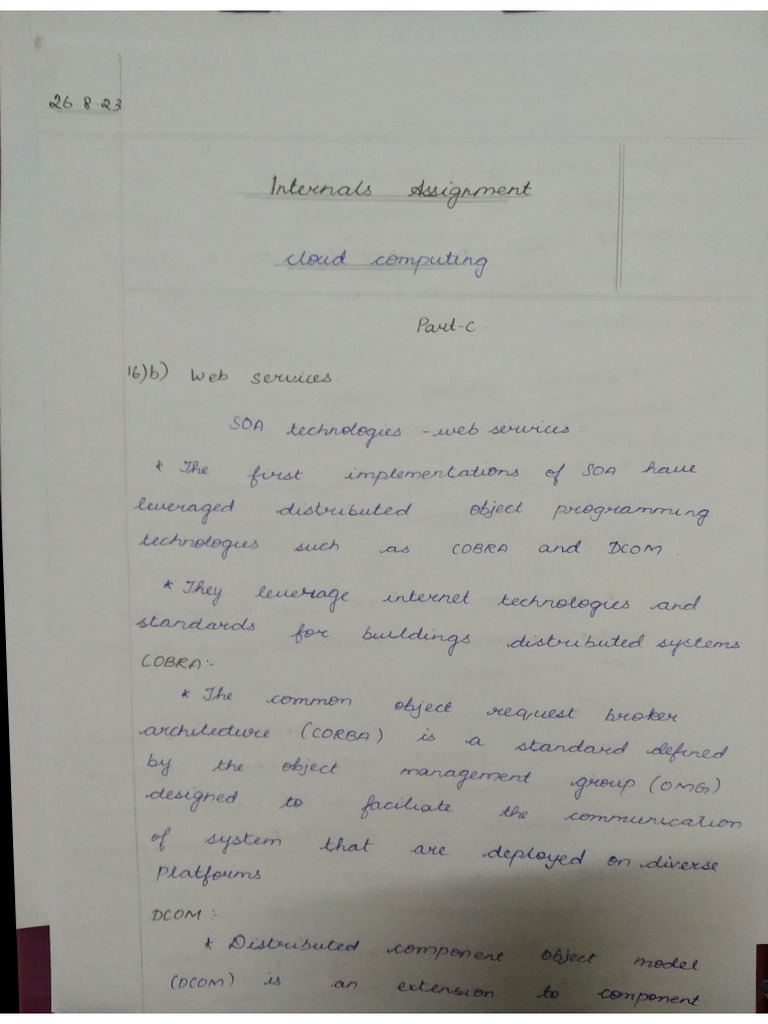 26.8.23
Internals Assignment
cloud computing
Part-C.
16)b) Web services
SOA technologies - web services.
* The first implementations of SOA have
leveraged distributed object programming
technologies such as COBRA and DCOM.
* They leverage internet technologies and
standards for buildings distributed systems
COBRA:-
* The common object request broker
architecture (CORBA) is a standard defined
by the object management group (OMG)
designed to faciliate the communication
of system that are deployed on diverse
Platforms
DCOM:-
* Distributed component object model
(DCOM) is an extension to component